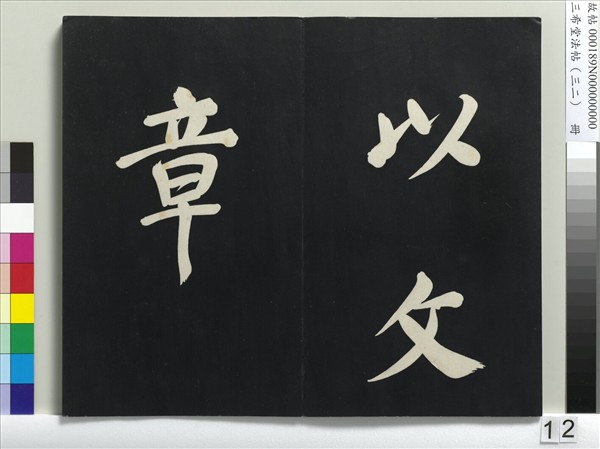 以文
章
故帖 000189N000000000
三希堂法帖（三二） 冊
12